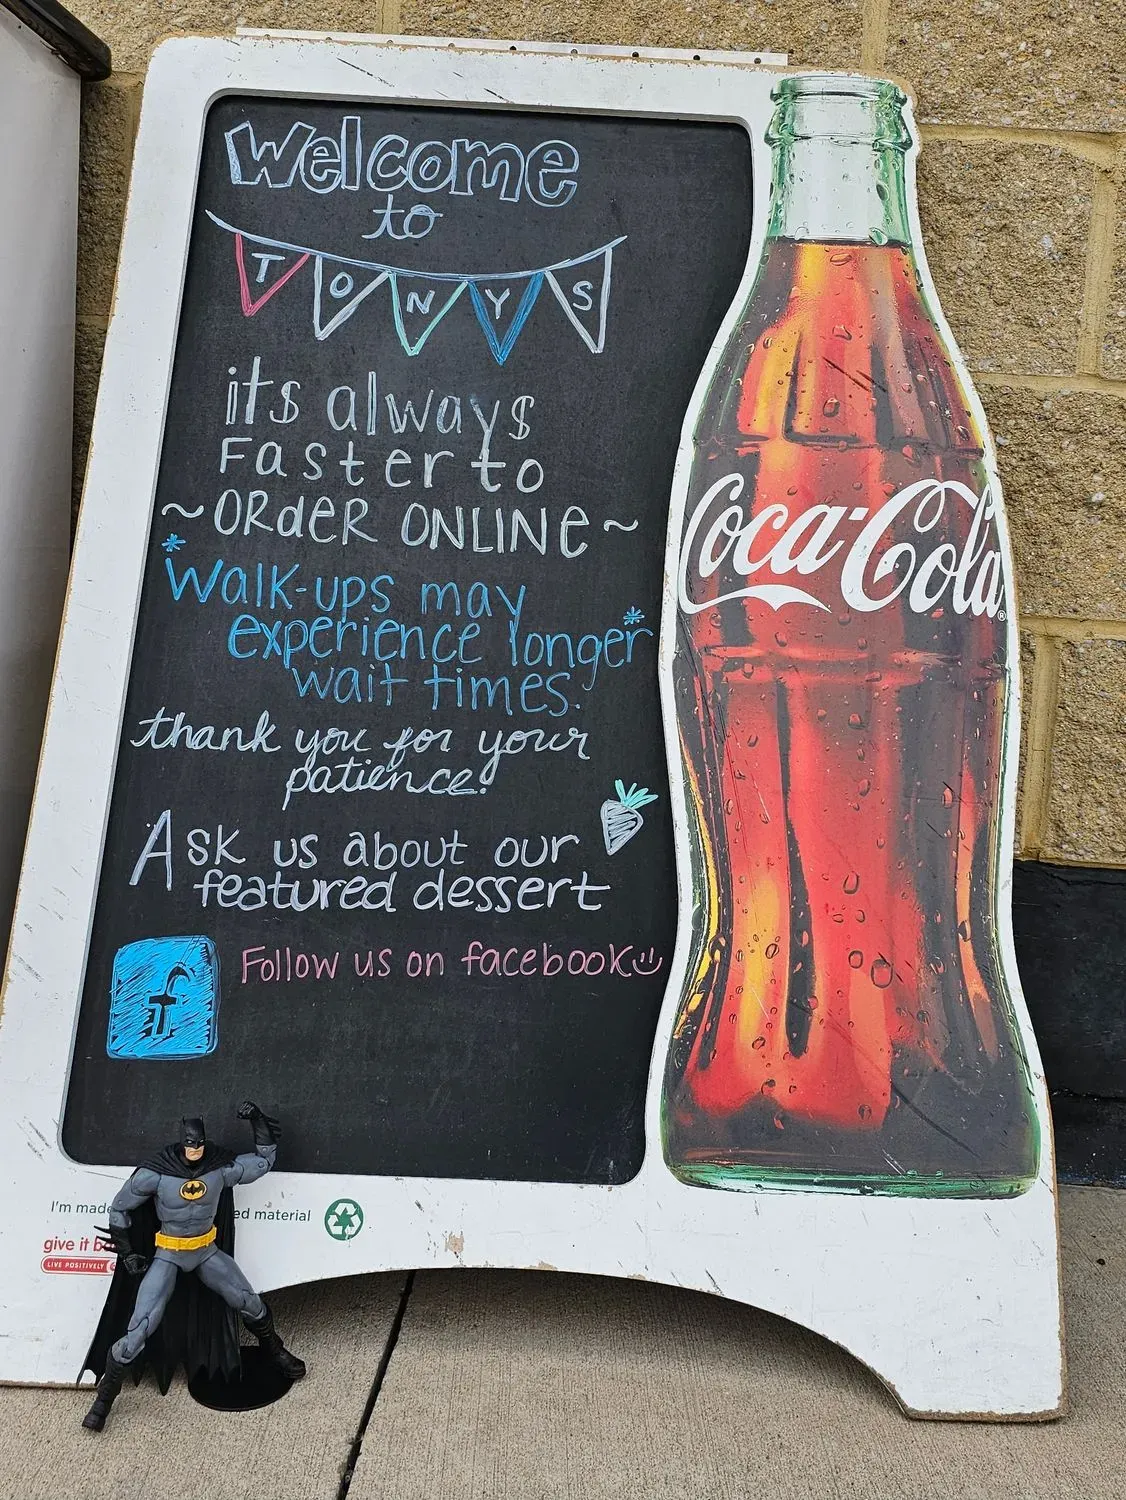 Welcome
to
TONYS
its always
Faster to
~ORdER ONLINE~
*Walk-ups may
experience longer*
wait times.
thank you for your
patience!
Ask us about our
featured dessert
f
Follow us on facebook
Coca-Cola®
I'm made ed material
give it b
LIVE POSITIVELY